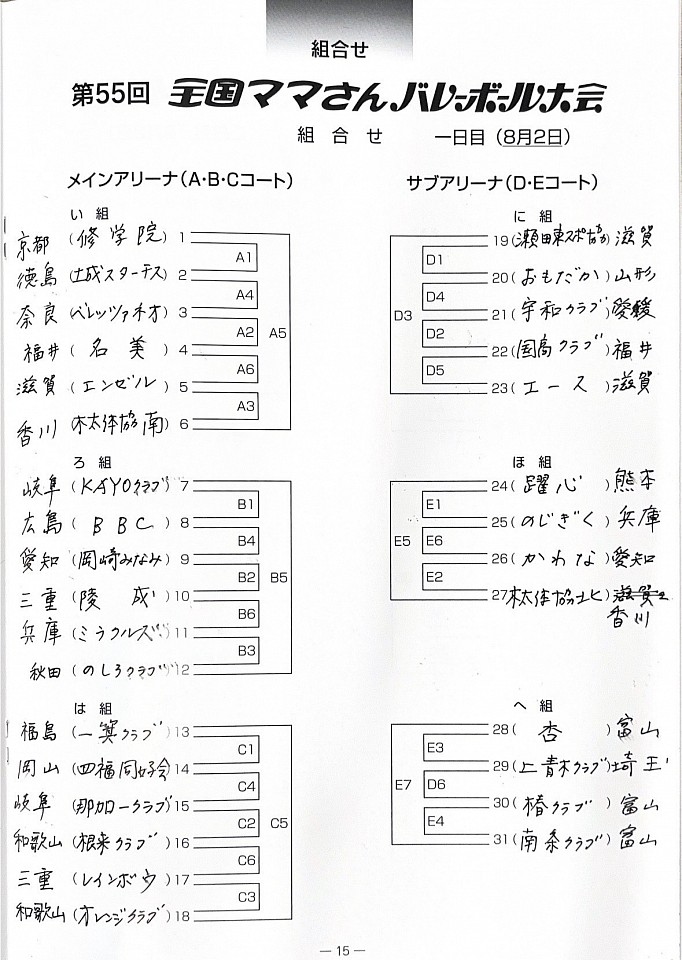 組合せ
第55回 全国ママさんバレーボール大会
組合せ 一日目(8月2日)
メインアリーナ(A・B・Cコート)
い組
京都 (修学院) 1
徳島 (土成スターズ) 2
奈良 (ベレッツァネオ) 3
福井 (名美) 4
滋賀 (エンゼル) 5
香川 (木太体協南) 6
A1
A4
A2 A5
A6
A3
ろ組
岐阜 (KAYOクラブ) 7
広島 (BBC) 8
愛知 (岡崎みなみ) 9
三重 (陵成) 10
兵庫 (ミラクルズ) 11
秋田 (のしろクラブ) 12
B1
B4
B2 B5
B6
B3
は組
福島 (一箕クラブ) 13
岡山 (四福同好会) 14
岐阜 (那加クラブ) 15
和歌山 (根来クラブ) 16
三重 (レインボウ) 17
和歌山 (オレンジクラブ) 18
C1
C4
C2 C5
C6
C3
サブアリーナ(D・Eコート)
に組
19 (瀬田東スポ協) 滋賀
20 (おもだか) 山形
21 (宇和クラブ) 愛媛
22 (国高クラブ) 福井
23 (エース) 滋賀
D1
D4
D3
D2
D5
ほ組
24 (躍心) 熊本
25 (のじぎく) 兵庫
26 (かわな) 愛知
27 木太体協北) 滋賀
香川
E1
E5 E6
E2
へ組
28 (杏) 富山
29 (上青木クラブ) 埼玉
30 (椿クラブ) 富山
31 (南条クラブ) 富山
E3
E7 D6
E4
— 15 —